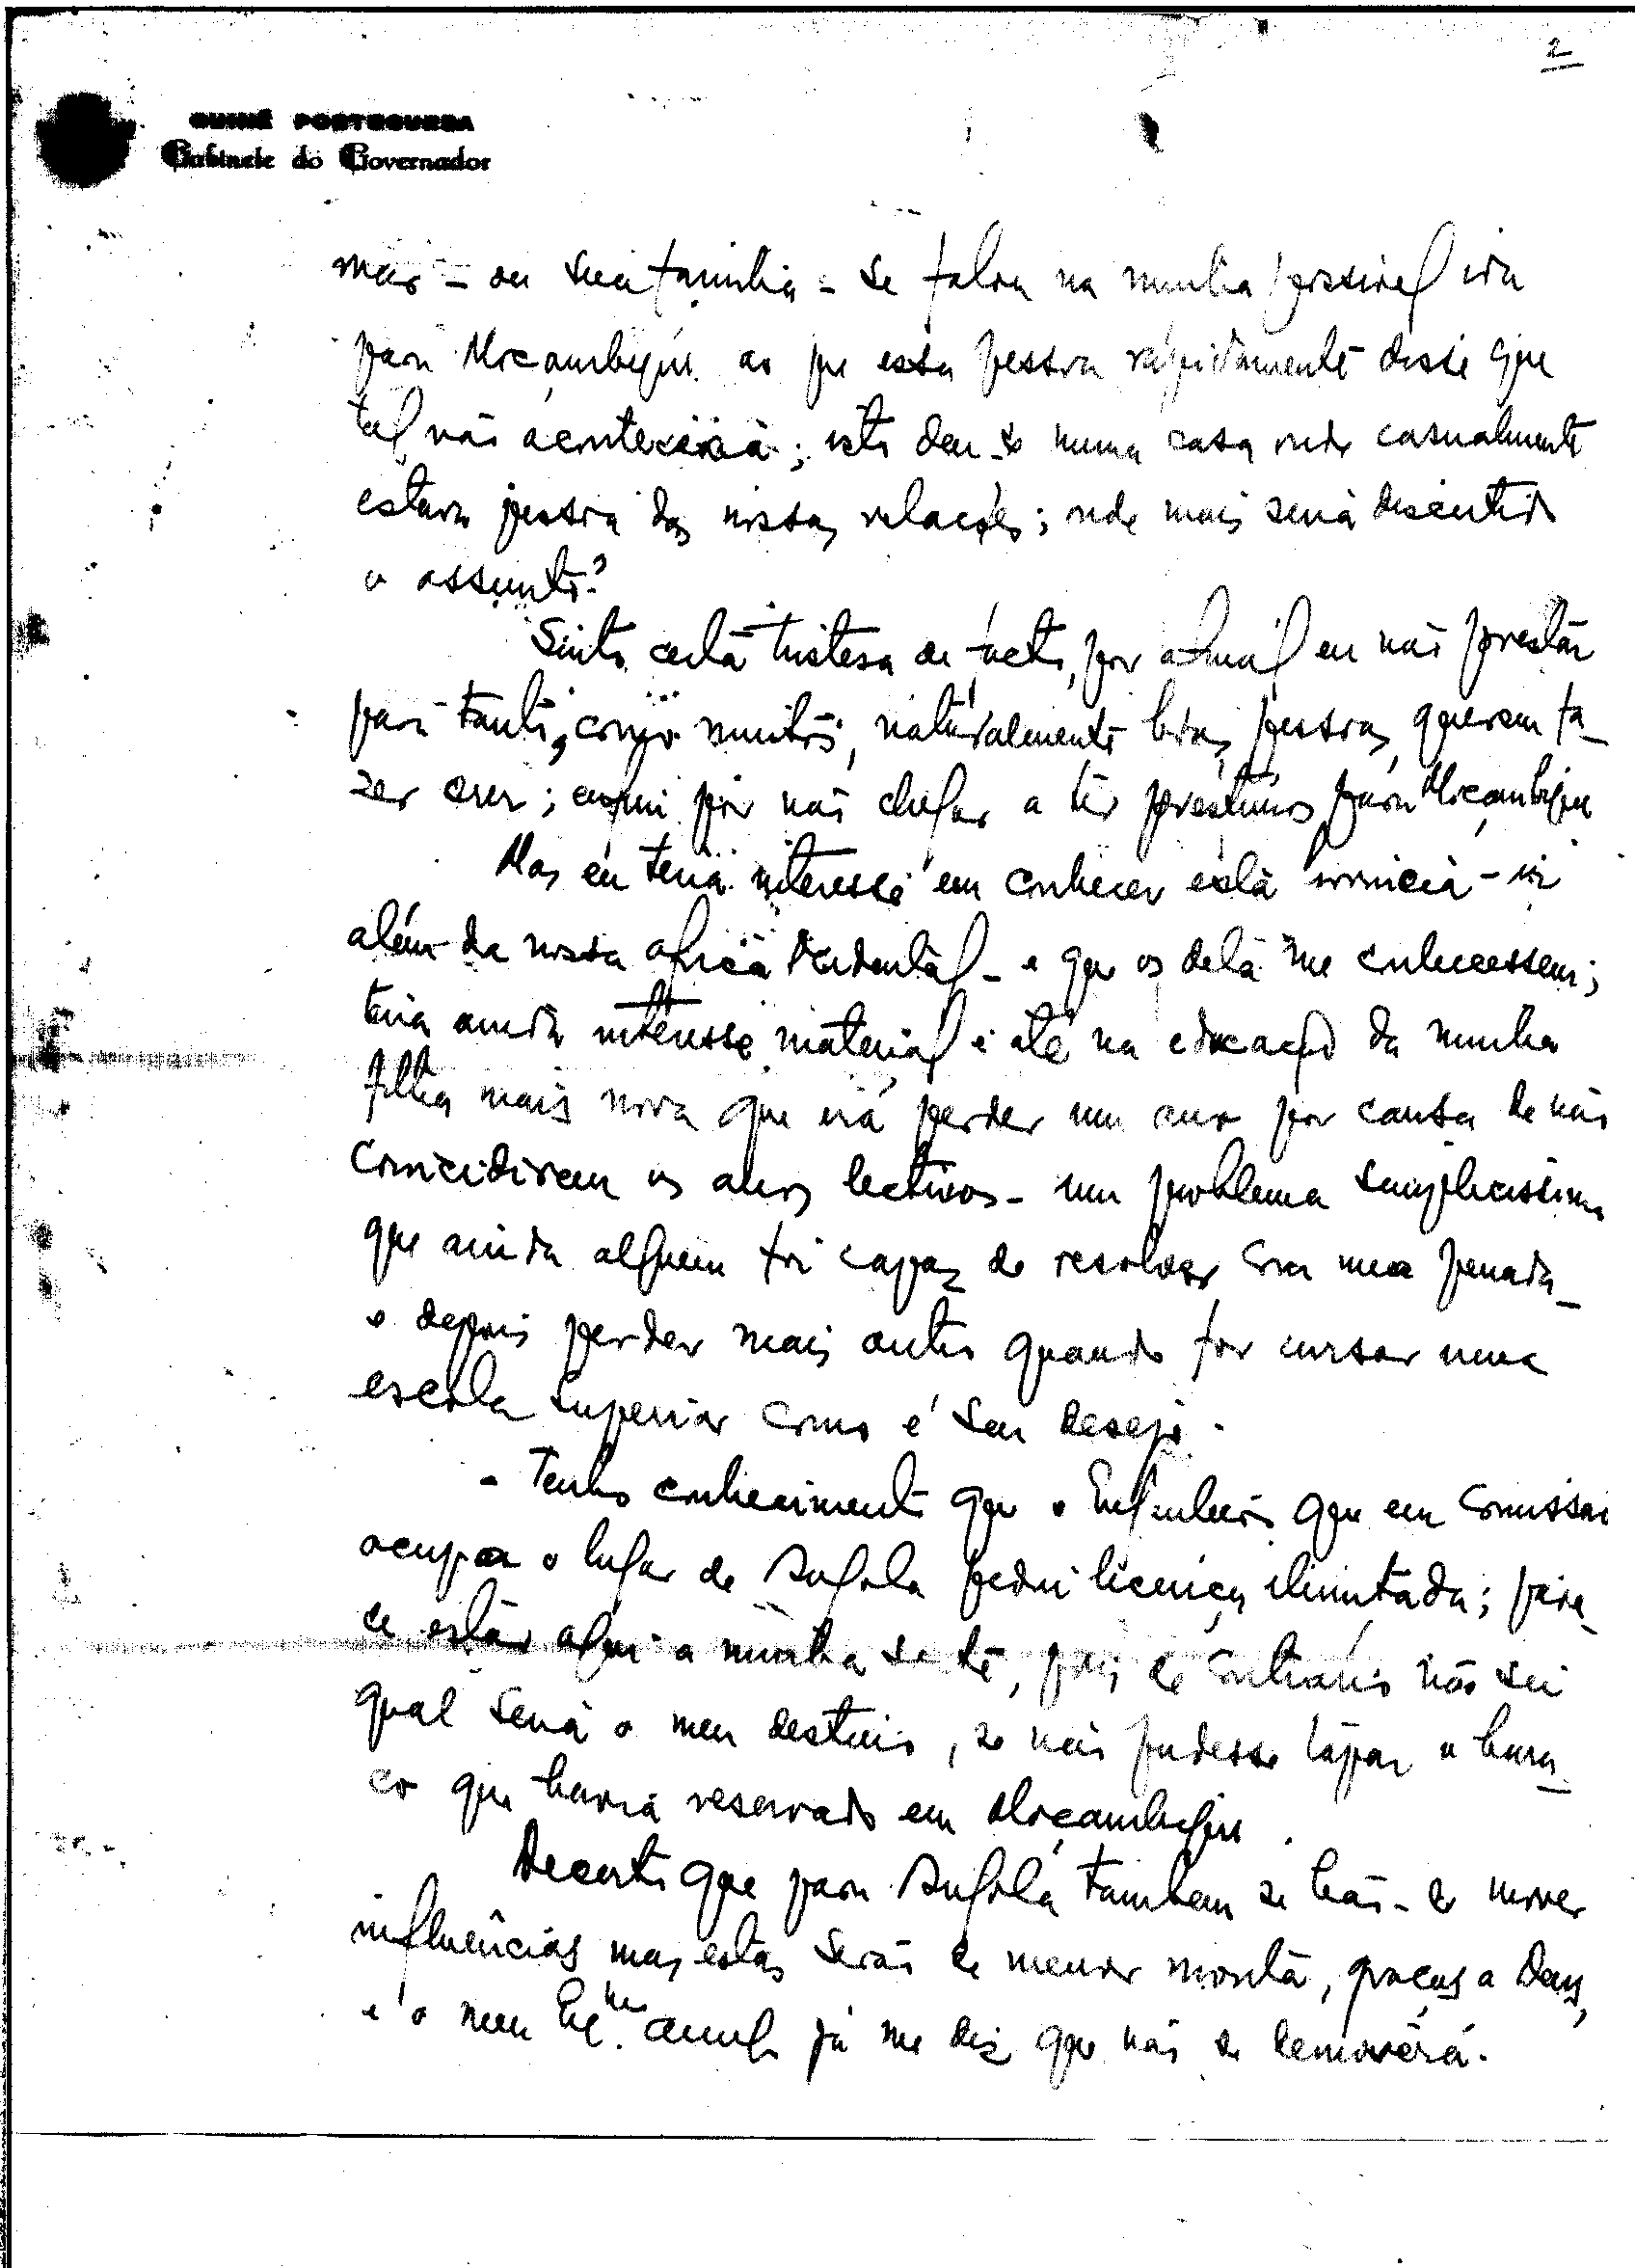 2
GUINÉ PORTUGUESA
Gabinete do Governador
mas - ou sua familia - se falou na minha possivel ida
para Moçambique ao que essa pessoa rápidamente disse que
tal não aconteceria; isto deu-se numa casa onde casualmente
estava pessoa das nossas relações; onde mais será discutido
o assunto?
Sinto certa tristesa de facto, por afinal eu não prestar
para tanto, como muitos, naturalmente boas pessoas, querem fa-
zer crer; enfim por não chegar a ter prestimos para Moçambique
Mas eu teria interesse em conhecer esta provincia - ir
além da nossa Africa Ocidental - e que os dela me conhecessem;
teria ainda interesse material e até na educação da minha
filha mais nova que irá perder um ano por causa de não
coincidirem os anos lectivos - um problema simplicissimo
que ainda alguem foi capaz de resolver com uma penada -
e depois perder mais outro quando for cursar uma
escola superior como é seu desejo.
- Tenho conhecimento que o Engenheiro que em comissão
ocupa o lugar de Angola pediu licença ilimitada; pare-
ce estar aqui a minha sorte, pois de contrário não sei
qual será o meu destino, se não pudesse tapar o bura-
co que havia reservado em Moçambique.
Decerto que para Angola tambem se hão-de mover
influências mas estas serão de menor monta, graças a Deus,
e o meu Exmo. amigo já me diz que não se demoverá.